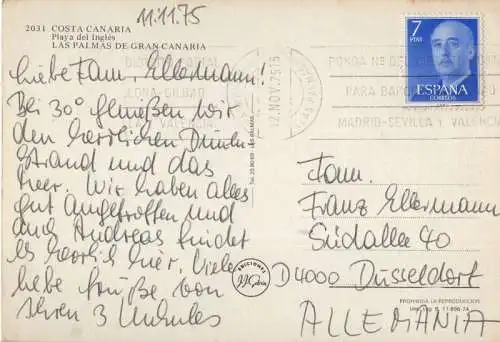 11.11.75
2031 COSTA CANARIA
Playa del Inglés
LAS PALMAS DE GRAN CANARIA
Liebe Fam. Ellermann!
Bei 30° genießen wir
den herrlichen Dünen
Strand und das
Meer. Wir haben alles
gut angetroffen und
auch Andreas findet
es herrlich hier. Viele
liebe Grüße von
Ihren 3
7
PTAS
ESPAÑA
CORREOS
12.NOV.75
PONGA Nº DE
PARA BAR
MADRID-SEVILLA Y VALENCIA
Fam.
Franz Ellermann
Südallee 40
D 4000 Düsseldorf
ALLEMANIA
EDICIONES
PROHIBIDA LA REPRODUCCION